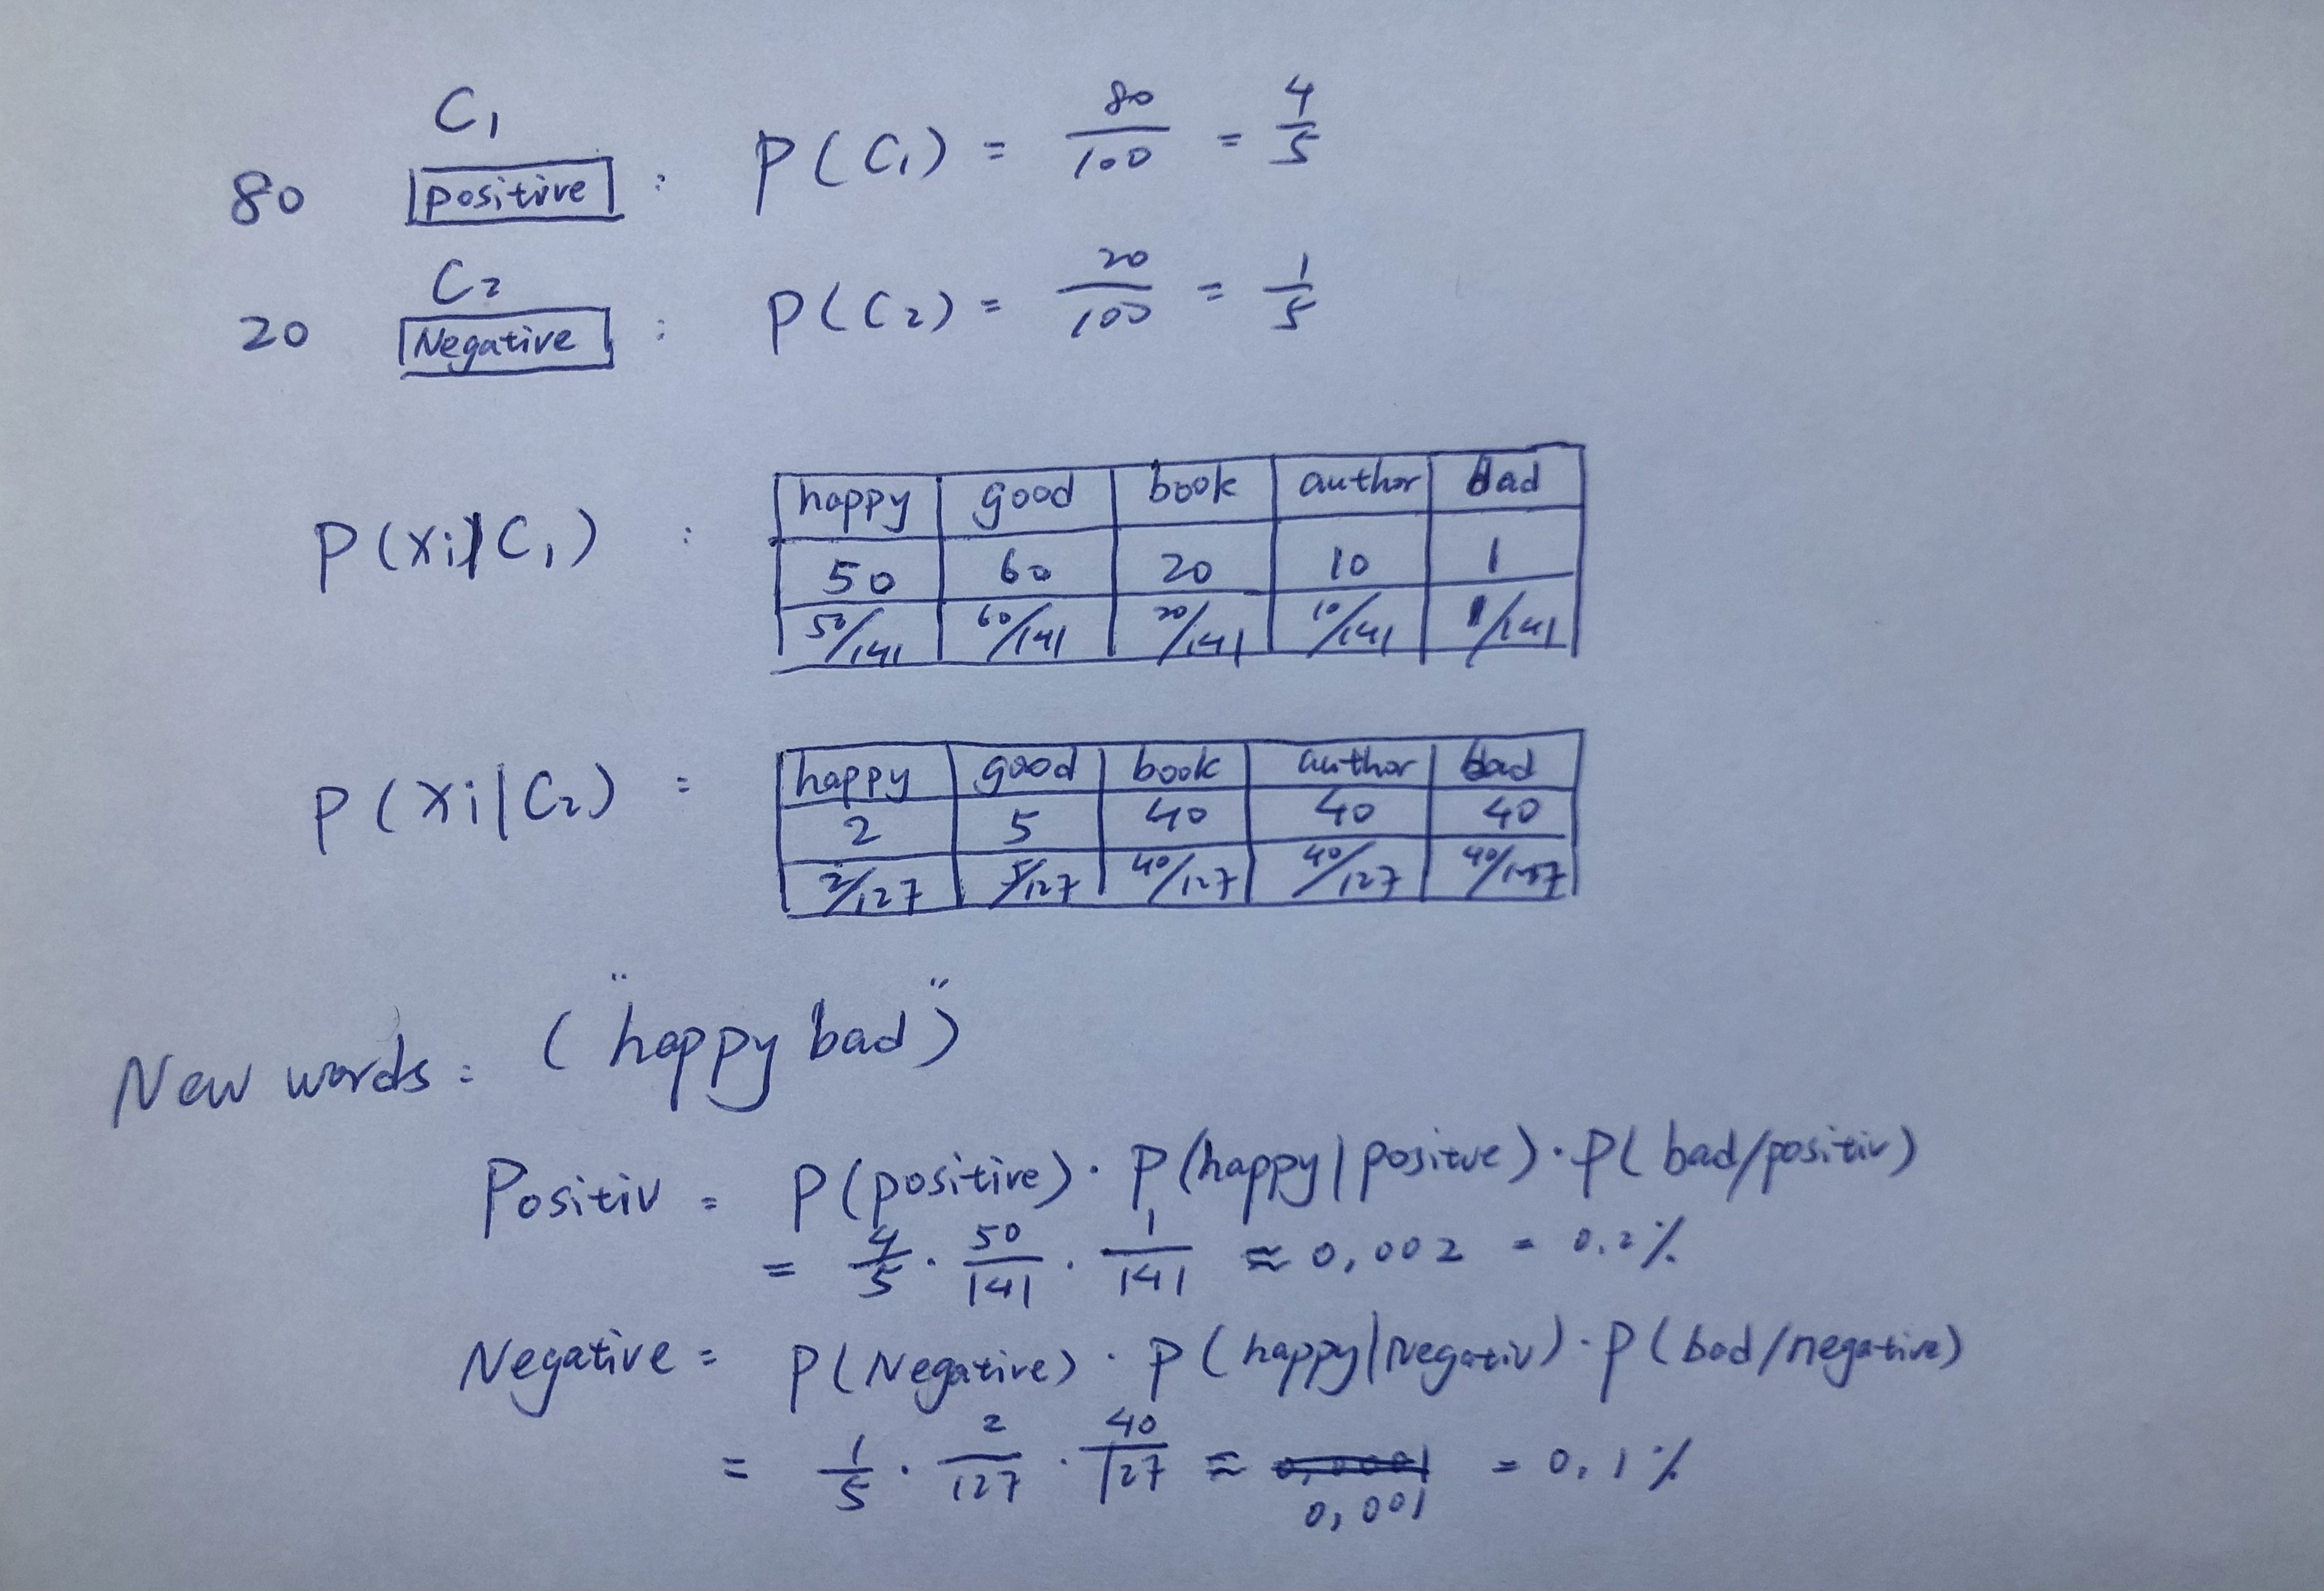 C₁
80 positive : P(C₁) = 80/100 = 4/5
C₂
20 Negative : P(C₂) = 20/100 = 1/5
P(xi|C₁) :
happy good book author bad
50 60 20 10 1
50/141 60/141 20/141 10/141 1/141
P(xi|C₂) :
happy good book author bad
2 5 40 40 40
2/127 5/127 40/127 40/127
New words: ("happy bad")
Positiv = P(positive) · P(happy|positve) · P(bad/positiv)
= 4/5 · 50/141 · 1/141 ≈ 0,002 = 0.2%
Negative = P(Negative) · P(happy|Negativ) · P(bad/negative)
= 1/5 · 2/127 · 40/127 ≈ 0,0001 = 0.1%
0,001